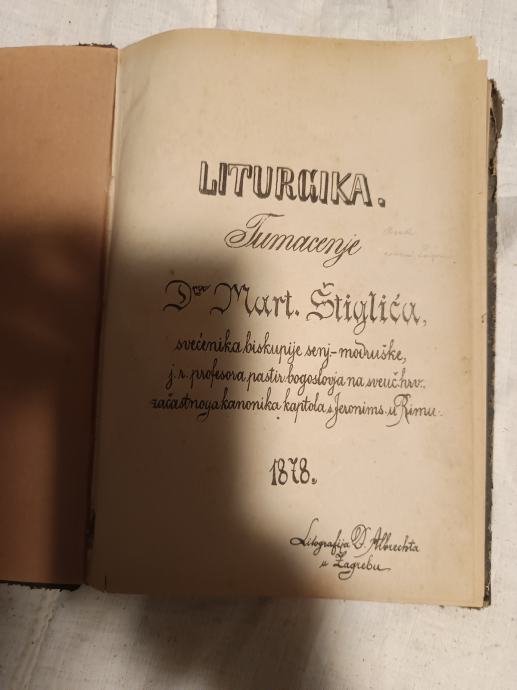 LITURGIKA.
Tumačenje
Dra Mart. Štiglića,
svećenika biskupije senj.-modruške,
j. r. profesora pastir. bogoslovja na sveuč. hrv.
začastnoga kanonika kaptola s. Jeronims. u Rimu.
1878.
Litografija D. Albrechta
u Zagrebu